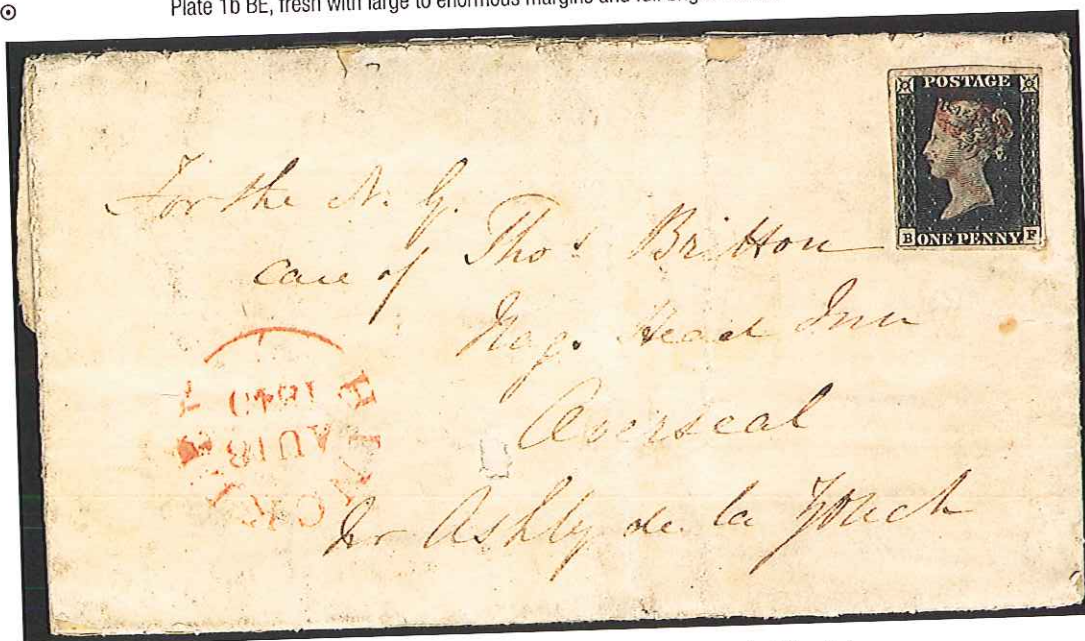 Plate 1b BE, fresh with large to enormous margins and full
POSTAGE
B ONE PENNY F
For the N. G.
care of Thos Britton
Nags Head Inn
Overseal
Nr Ashby de la Zouch
1840
AU18